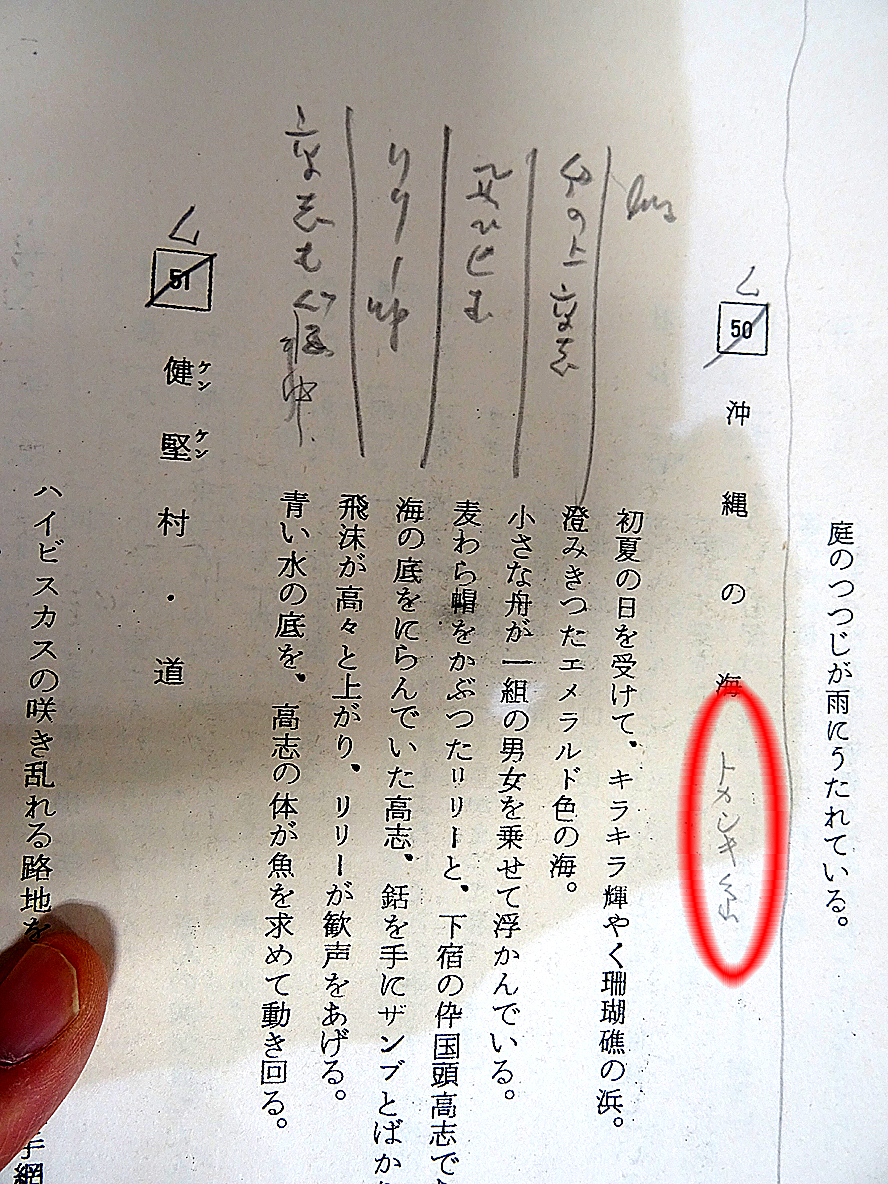 庭のつつじが雨にうたれている。
50 沖縄の海
初夏の日を受けて、キラキラ輝やく珊瑚礁の浜。
澄みきつたエメラルド色の海。
小さな舟が一組の男女を乗せて浮かんでいる。
麦わら帽をかぶつたリリーと、下宿の伜国頭高志で
海の底をにらんでいた高志、銛を手にザンブとばか
飛沫が高々と上がり、リリーが歓声をあげる。
青い水の底を、高志の体が魚を求めて動き回る。
舟の上 高志
リリー up
51 健堅村・道
ケンケン
ハイビスカスの咲き乱れる路地を
手網